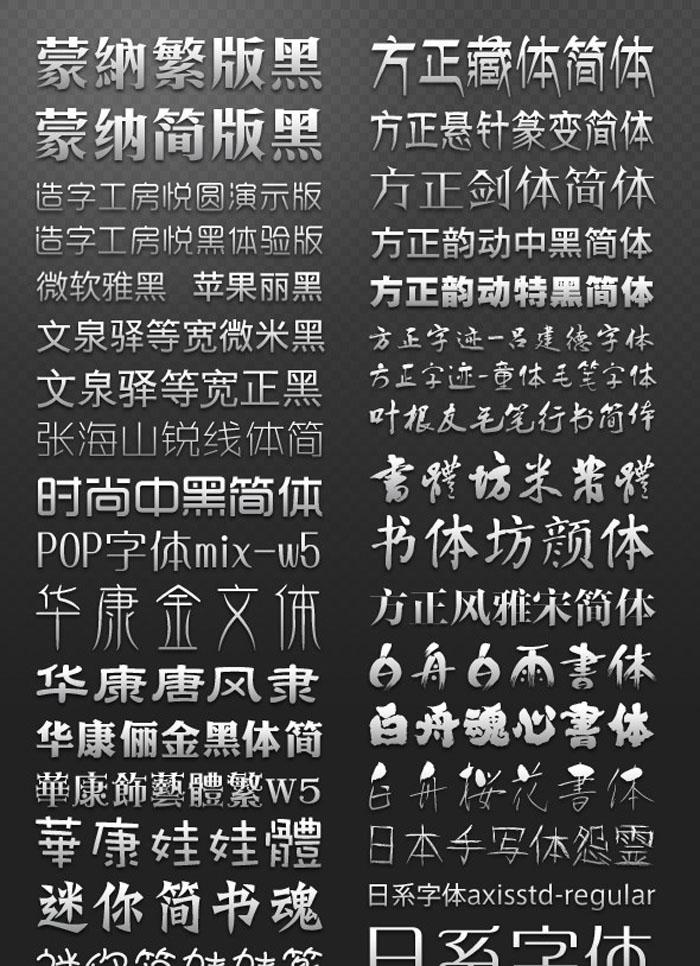 蒙納繁版黑
蒙纳简版黑
造字工房悦圆演示版
造字工房悦黑体验版
微软雅黑 苹果丽黑
文泉驿等宽微米黑
文泉驿等宽正黑
张海山锐线体简
时尚中黑简体
POP字体mix-w5
华康金文体
华康唐风隶
华康俪金黑体简
華康飾藝體繁W5
華康娃娃體
迷你简书魂
方正藏体简体
方正悬针篆变简体
方正剑体简体
方正韵动中黑简体
方正韵动特黑简体
方正字迹-吕建德字体
方正字迹-童体毛笔字体
叶根友毛笔行书简体
書體坊米芾體
书体坊颜体
方正风雅宋简体
白舟白雨書体
白舟魂心書体
白舟桜花書体
日本手写体怨霊
日系字体axisstd-regular
日系字体